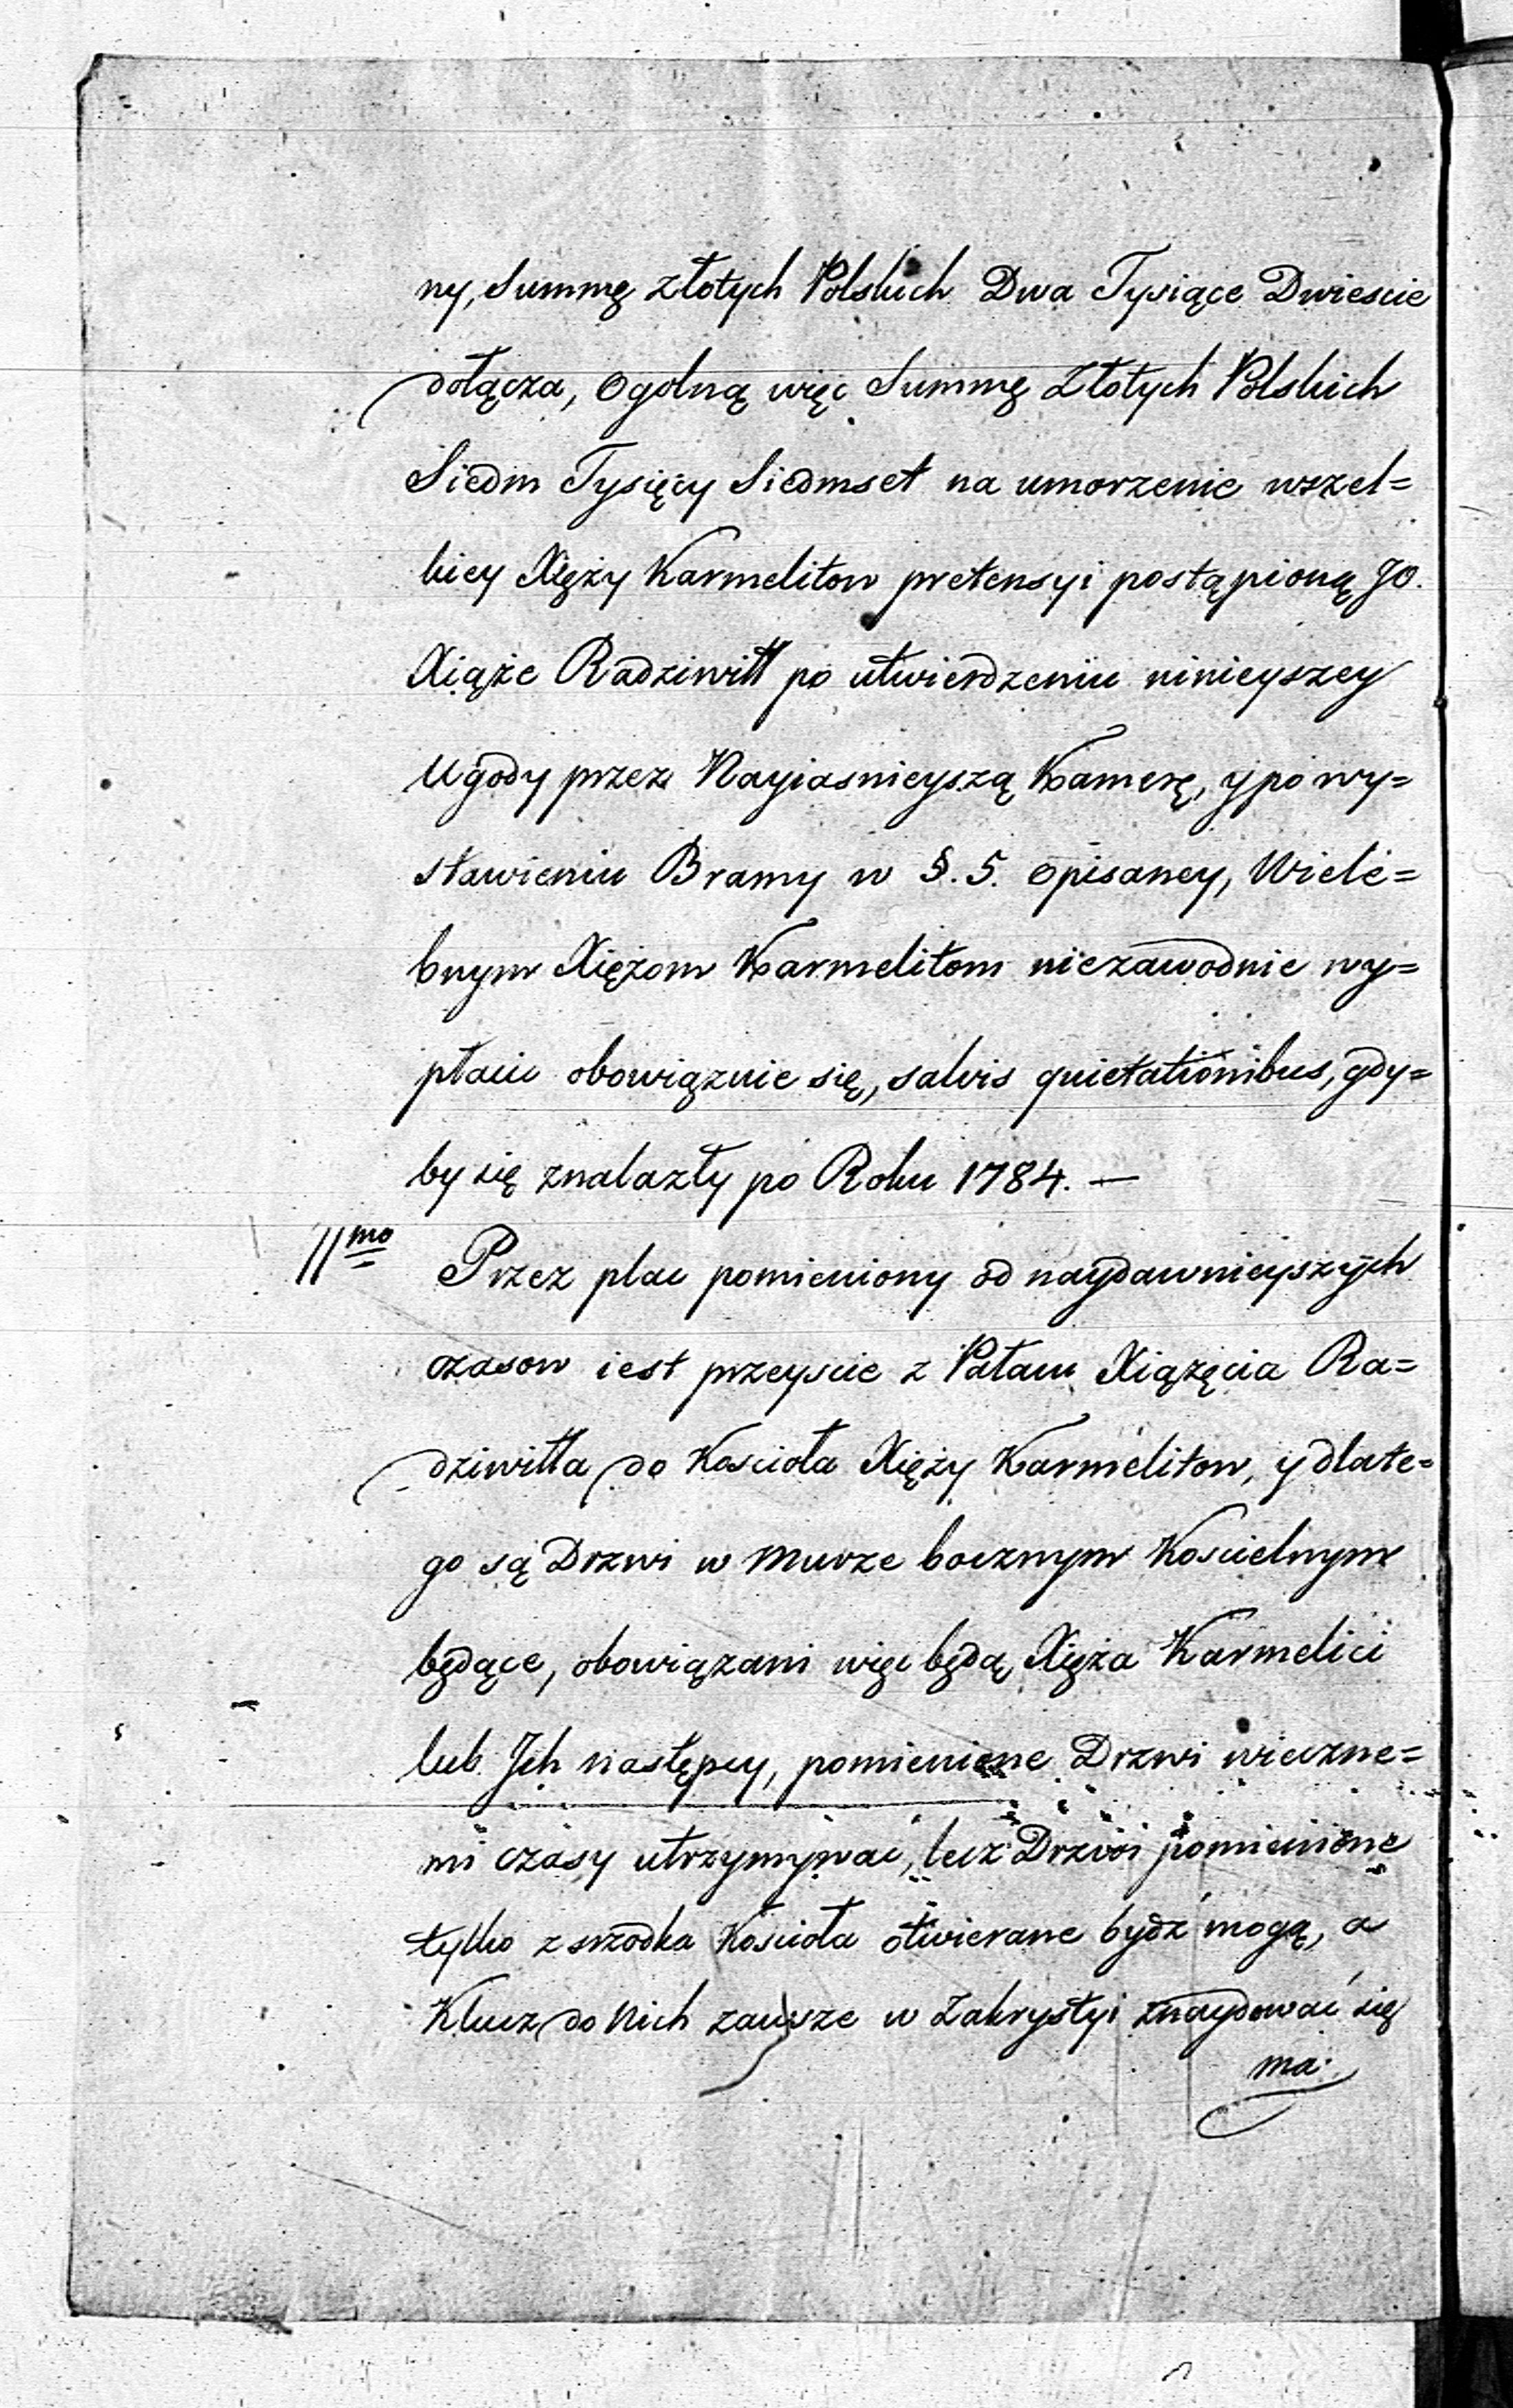 ny, Summę złotych Polskich Dwa Tysiące Dwiescie
dołącza, ogolną więc Summę Złotych Polskich
Siedm Tysięcy Siedmset na umorzenie wszel=
kiey Xięży Karmelitow pretensyi postąpioną JO.
Xiąże Radziwiłł po utwierdzeniu ninieyszey
Ugody przez Nayiasnieyszą Kamerę, y po wy=
stawieniu Bramy w §. 5. opisaney, Wiele=
bnym Xiężom Karmelitom niezawodnie wy=
płacic obowiązuie się, salvis quietationibus, gdy=
by się znalazły po Roku 1784. —
11mo Przez plac pomieniony od naydawnieyszych
czasow iest przeyscie z Pałacu Xiążęcia Ra=
dziwiłła do Kościoła Xięży Karmelitow, y dlate=
go są Drzwi w Murze bocznym Koscielnym
będące, obowiązani więc będą Xięża Karmelici
lub Jch następcy, pomienione Drzwi wieczne=
mi czasy utrzymywać, lecz Drzwi pomienione
tylko z srzodka Kościoła otwierane bydź mogą, a
Klucz do Nich zawsze w Zakrystyi znaydować się
ma.